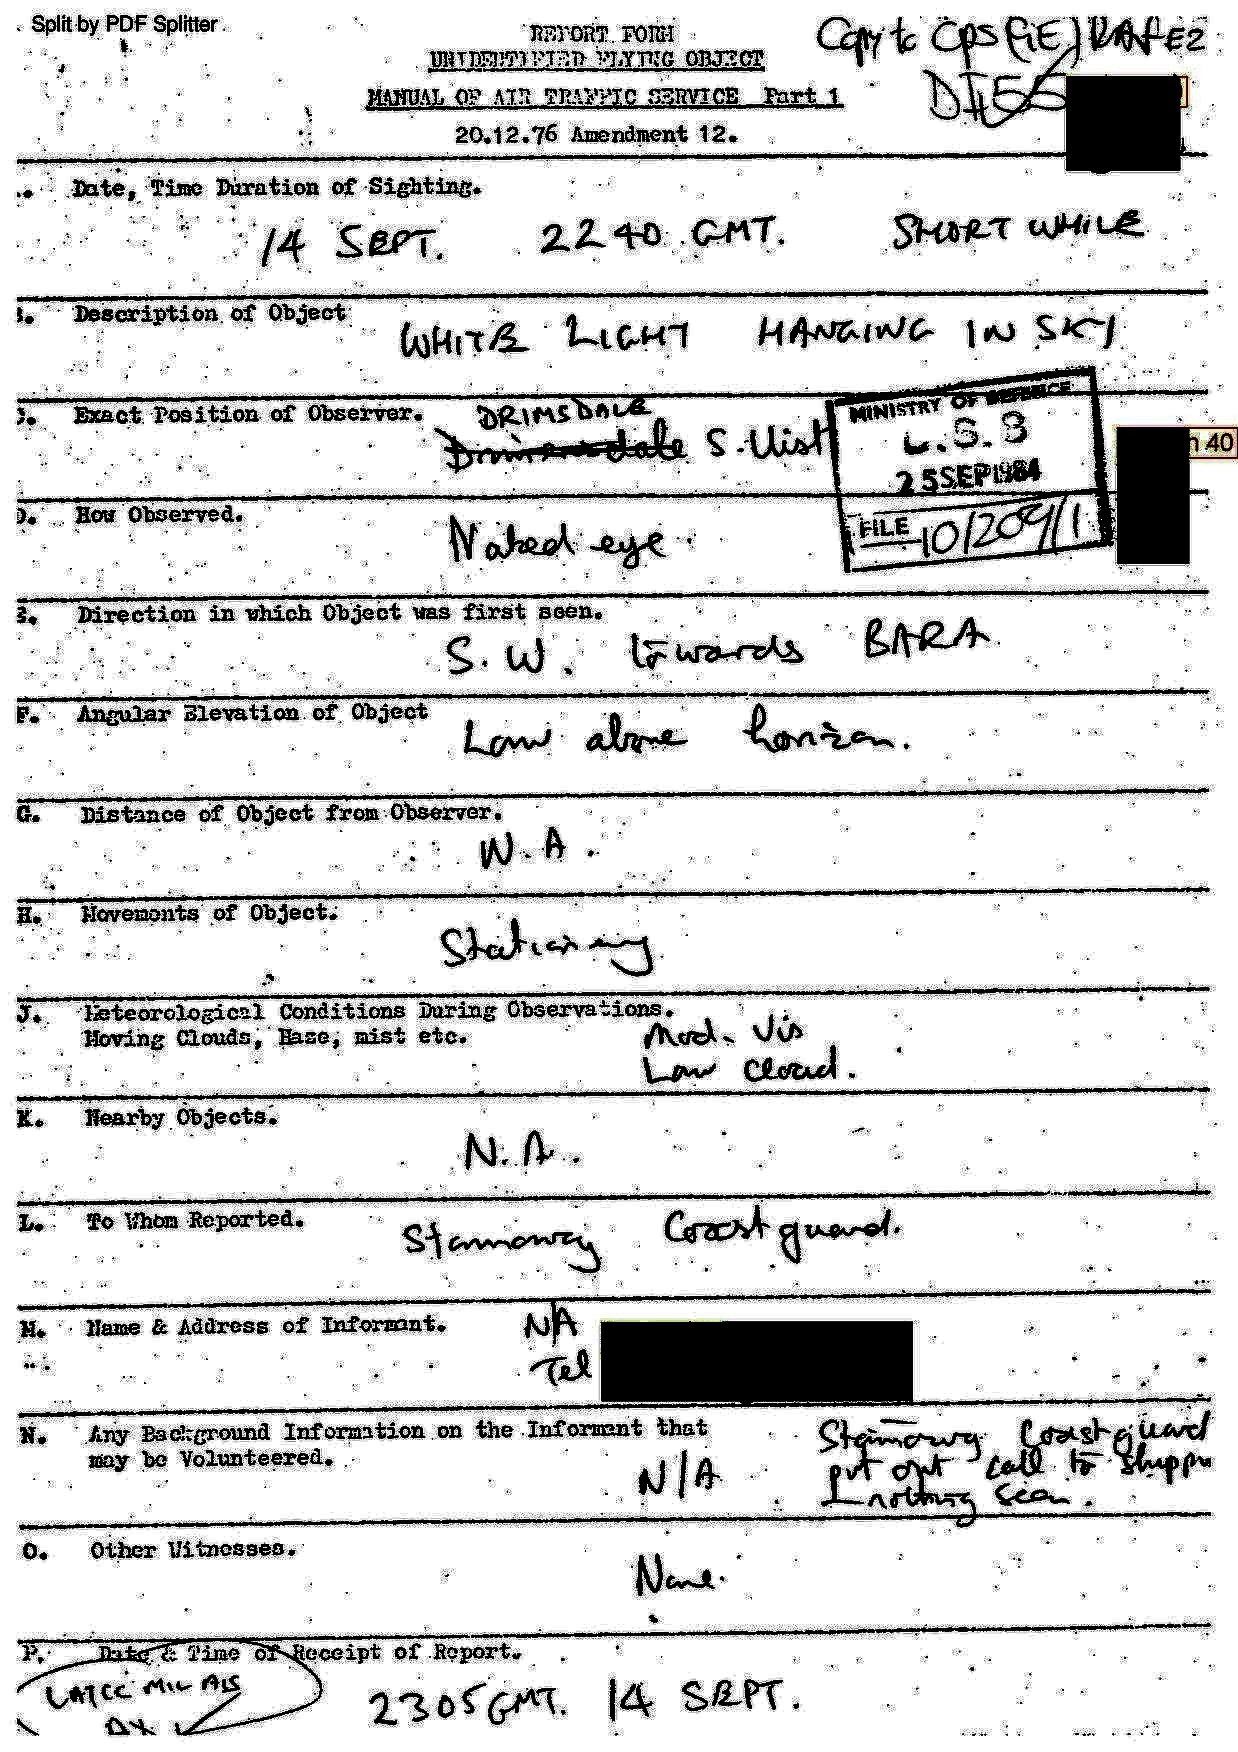 Split by PDF Splitter
REPORT FORM
UNIDENTIFIED FLYING OBJECT
Copy to CPS (RE) RAFE2
DI55
MANUAL OF AIR TRAFFIC SERVICE Part 1
20.12.76 Amendment 12.
Date, Time Duration of Sighting.
14 SEPT. 2240 GMT. SHORT WHILE
Description of Object
WHITE LIGHT HANGING IN SKY
C. Exact Position of Observer.
DRIMSDALE
S. Uist
MINISTRY OF DEFENCE
25 SEP 1984
FILE 10/209/1
n 40
D. How Observed.
Naked eye.
E. Direction in which Object was first seen.
S.W. towards BARA
F. Angular Elevation of Object
Low above horizon.
G. Distance of Object from Observer.
N.A.
H. Movements of Object.
Stationary
J. Meteorological Conditions During Observations.
Moving Clouds, Haze, mist etc.
Mod. Vis
Low cloud.
K. Nearby Objects.
N.A.
L. To Whom Reported.
Stornoway Coastguard.
M. Name & Address of Informant.
N/A
Tel
N. Any Background Information on the Informent that
may be Volunteered.
N/A
Stornoway Coastguard
put out call to shippn
- nothing seen.
O. Other Witnesses.
None.
P. Date & Time of Receipt of Report.
LATCC MIL AIS
2305 GMT. 14 SEPT.